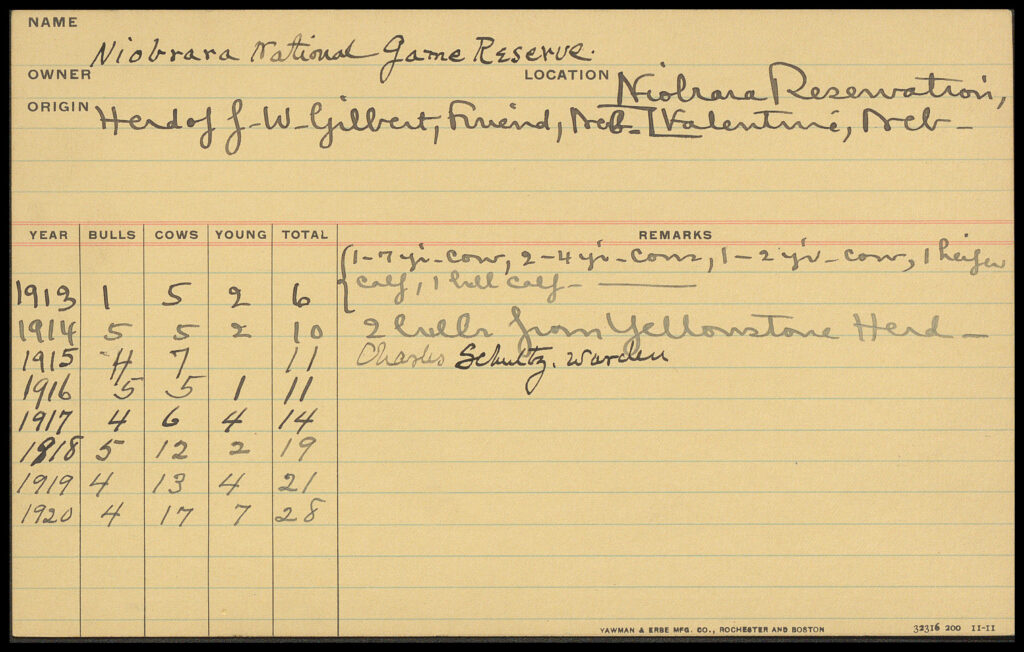 NAME
Niobrara National Game Reserve.
OWNER LOCATION Niobrara Reservation,
ORIGIN Herd of J-W-Gilbert, Friend, Neb- [Valentine, Neb-
YEAR BULLS COWS YOUNG TOTAL REMARKS
{1-7 yr-cow, 2-4 yr-cows, 1-2 yr-cow, 1 heifer
calf, 1 bull calf-
1913 1 5 2 6
1914 5 5 2 10 2 bulls from Yellowstone Herd-
1915 4 7 11 Charles Schultz. Warden
1916 5 5 1 11
1917 4 6 4 14
1918 5 12 2 19
1919 4 13 4 21
1920 4 17 7 28
YAWMAN & ERBE MFG. CO., ROCHESTER AND BOSTON 32316 200 11-11